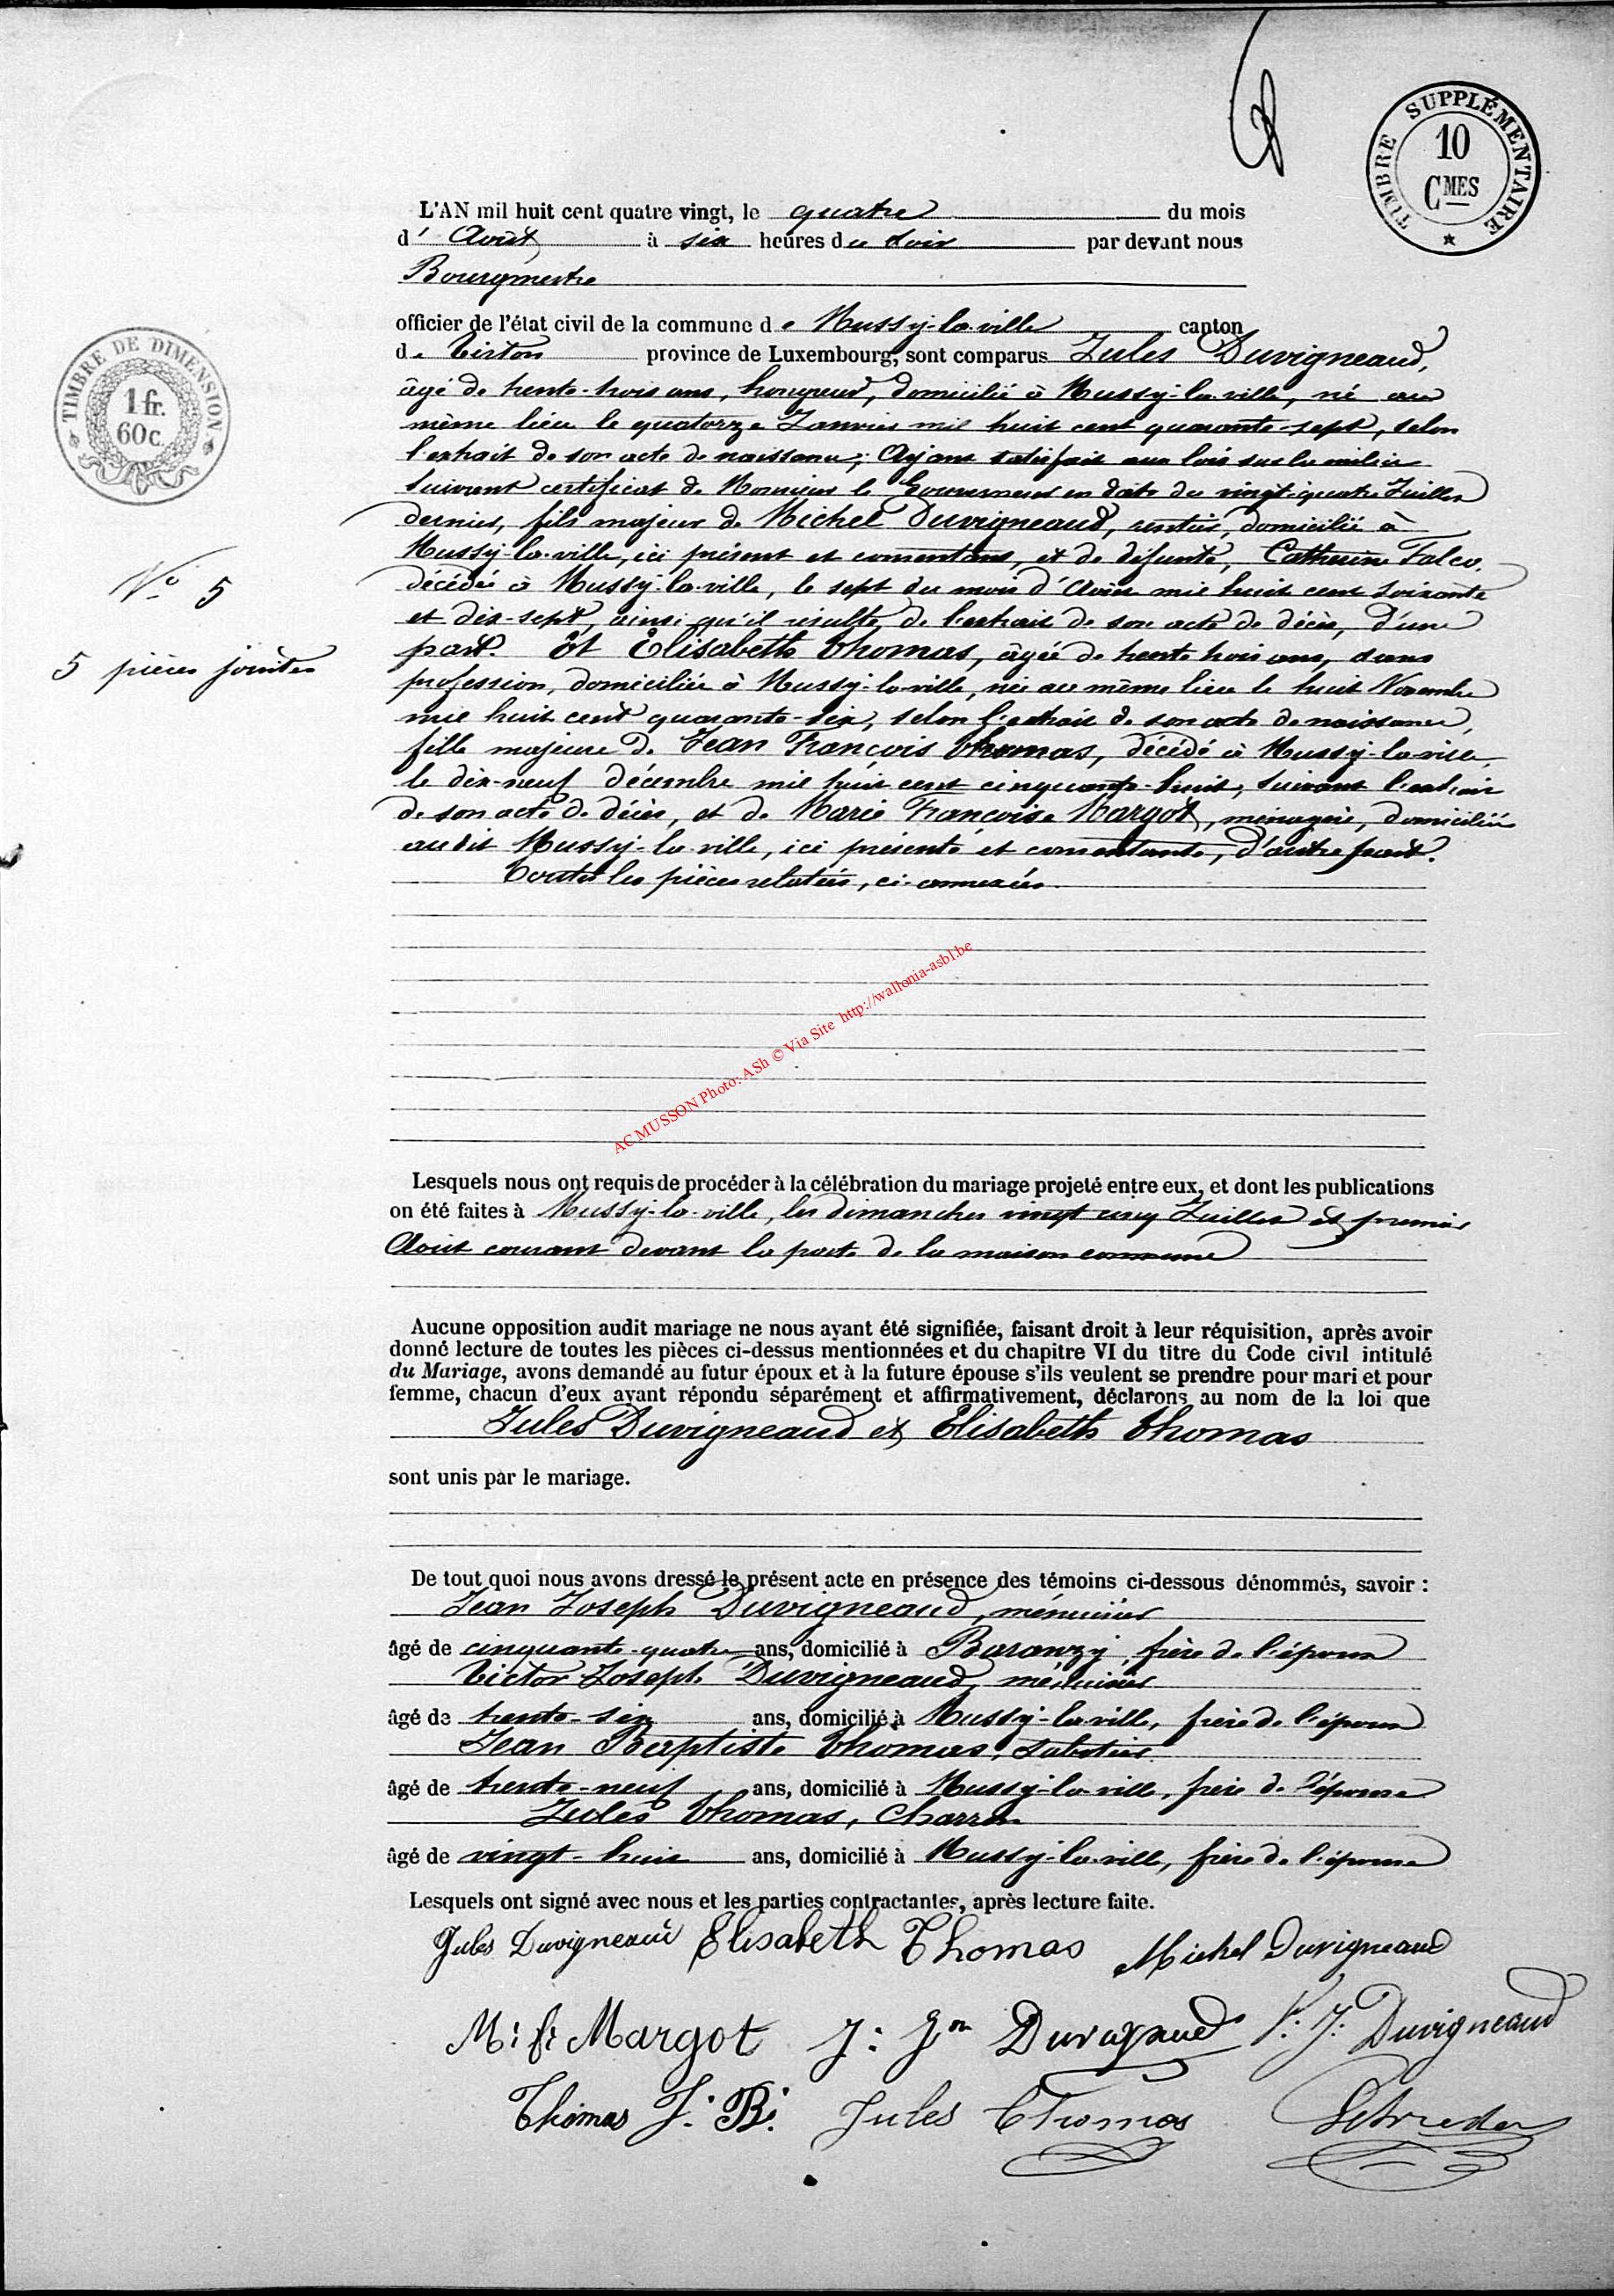 TIMBRE SUPPLÉMENTAIRE
10
CMES
L'AN mil huit cent quatre vingt, le quatre du mois
d' Août à six heures du soir par devant nous
Bourgmestre
officier de l'état civil de la commune de Mussy-la-ville canton
de Virton province de Luxembourg, sont comparus Jules Duvigneaud,
TIMBRE DE DIMENSION
1 fr.
60 c.
âgé de trente-trois ans, hongreur, domicilié à Mussy-la-ville, né au
même lieu le quatorze Janvier mil huit cent quarante-sept, selon
l'extrait de son acte de naissance; Ayant satisfait aux lois sur la milice
suivant certificat de Monsieur le Gouverneur en date du vingt-quatre Juillet
dernier, fils majeur de Michel Duvigneaud, rentier, domicilié à
Mussy-la-ville, ici présent et consentant, et de défunte, Catherine Falco,
No 5
décédée à Mussy-la-ville, le sept du mois d'Août mil huit cent soixante
et dix-sept, ainsi qu'il résulte de l'extrait de son acte de décès, d'une
5 pièces jointes
part. Et Elisabeth Thomas, âgée de trente trois ans, sans
profession, domiciliée à Mussy-la-ville, née au même lieu le huit Novembre
mil huit cent quarante-six, selon l'extrait de son acte de naissance,
fille majeure de Jean François Thomas, décédé à Mussy-la-ville,
le dix-neuf décembre mil huit cent cinquante-huit, suivant l'extrait
de son acte de décès, et de Marie Françoise Margot, ménagère, domiciliée
audit Mussy-la-ville, ici présente et consentante, d'autre part.
Toutes les pièces relatées, ci-annexées.
AC MUSSON Photo: ASh © Via Site http://wallonia-asbl.be
Lesquels nous ont requis de procéder à la célébration du mariage projeté entre eux, et dont les publications
on été faites à Mussy-la-ville, les dimanches vingt cinq Juillet et premier
Août courant devant la porte de la maison commune
Aucune opposition audit mariage ne nous ayant été signifiée, faisant droit à leur réquisition, après avoir
donné lecture de toutes les pièces ci-dessus mentionnées et du chapitre VI du titre du Code civil intitulé
du Mariage, avons demandé au futur époux et à la future épouse s'ils veulent se prendre pour mari et pour
femme, chacun d'eux ayant répondu séparément et affirmativement, déclarons au nom de la loi que
Jules Duvigneaud et Elisabeth Thomas
sont unis par le mariage.
De tout quoi nous avons dressé le présent acte en présence des témoins ci-dessous dénommés, savoir :
Jean Joseph Duvigneaud, ménuisier
âgé de cinquante-quatre ans, domicilié à Baranzy, frère de l'époux
Victor Joseph Duvigneaud, ménuisier
âgé de trente-six ans, domicilié à Mussy-la-ville, frère de l'époux
Jean Baptiste Thomas, sabotier
âgé de trente-neuf ans, domicilié à Mussy-la-ville, frère de l'épouse
Jules Thomas, Charron
âgé de vingt-huit ans, domicilié à Mussy-la-ville, frère de l'épouse
Lesquels ont signé avec nous et les parties contractantes, après lecture faite.
Jules Duvigneaud Elisabeth Thomas Michel Duvigneaud
M: f: Margot J: Jn Duvigneaud V: J: Duvigneaud
Thomas J: B: Jules Thomas